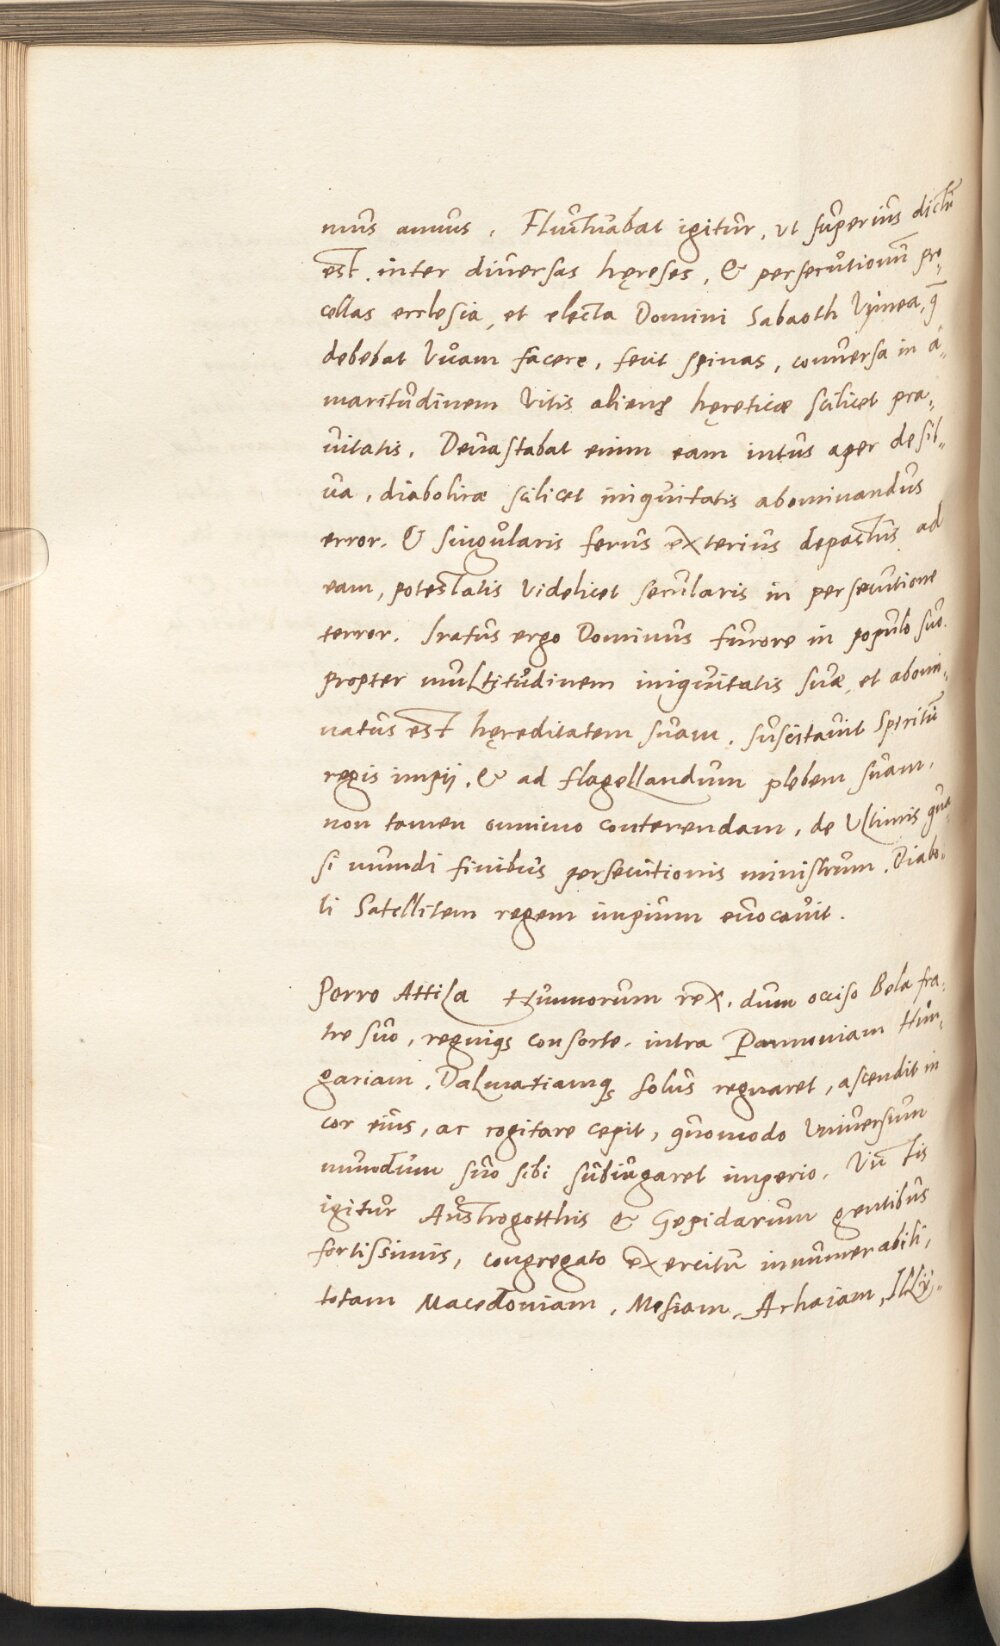 mus annus. Fluctuabat igitur, ut superius dictū
est. inter diuersas hęreses, & persecutionū pro-
cellas ecclesia, et electa Domini Sabaoth Vinea, q̄
debebat Vuam facere, fecit spinas, conuersa in a-
maritudinem Vitis alienę hęreticæ scilicet pra-
uitatis. Deuastabat enim eam intus aper de sil-
ua, diabolicæ scilicet iniquitatis abominandus
error. & singularis ferus exterius depastus ad
eam, potestatis Videlicet secularis in persecutione
terror. Iratus ergo Dominus furrore in populo suo.
propter multitudinem iniquitatis suæ, et abomi-
natus est hęreditatem suam. suscitauit Spiritū
regis impij. & ad flagellandum plebem suam,
non tamen omnino conterendam, de Ultimis qua
si mundi finibus persecutionis ministrum. Diabo-
li Satellitem regem impium euocauit.
Porro Attila Hunnorum rex. dum occiso Bela fra-
tre suo, regniqȝ consorte. intra Pannoniam Hun-
gariam. Dalmatiamqȝ solus regnaret, ascendit in
cor eius, ac cogitare cepit, quomodo Vniuersum
mundum suo sibi subiugaret imperio. Vinctis
igitur Austrogotthis & Gepidarum gentibus
fortissimis, congregato exercitu innumerabili,
totam Macedoniam, Mesiam, Achaiam, Illy-